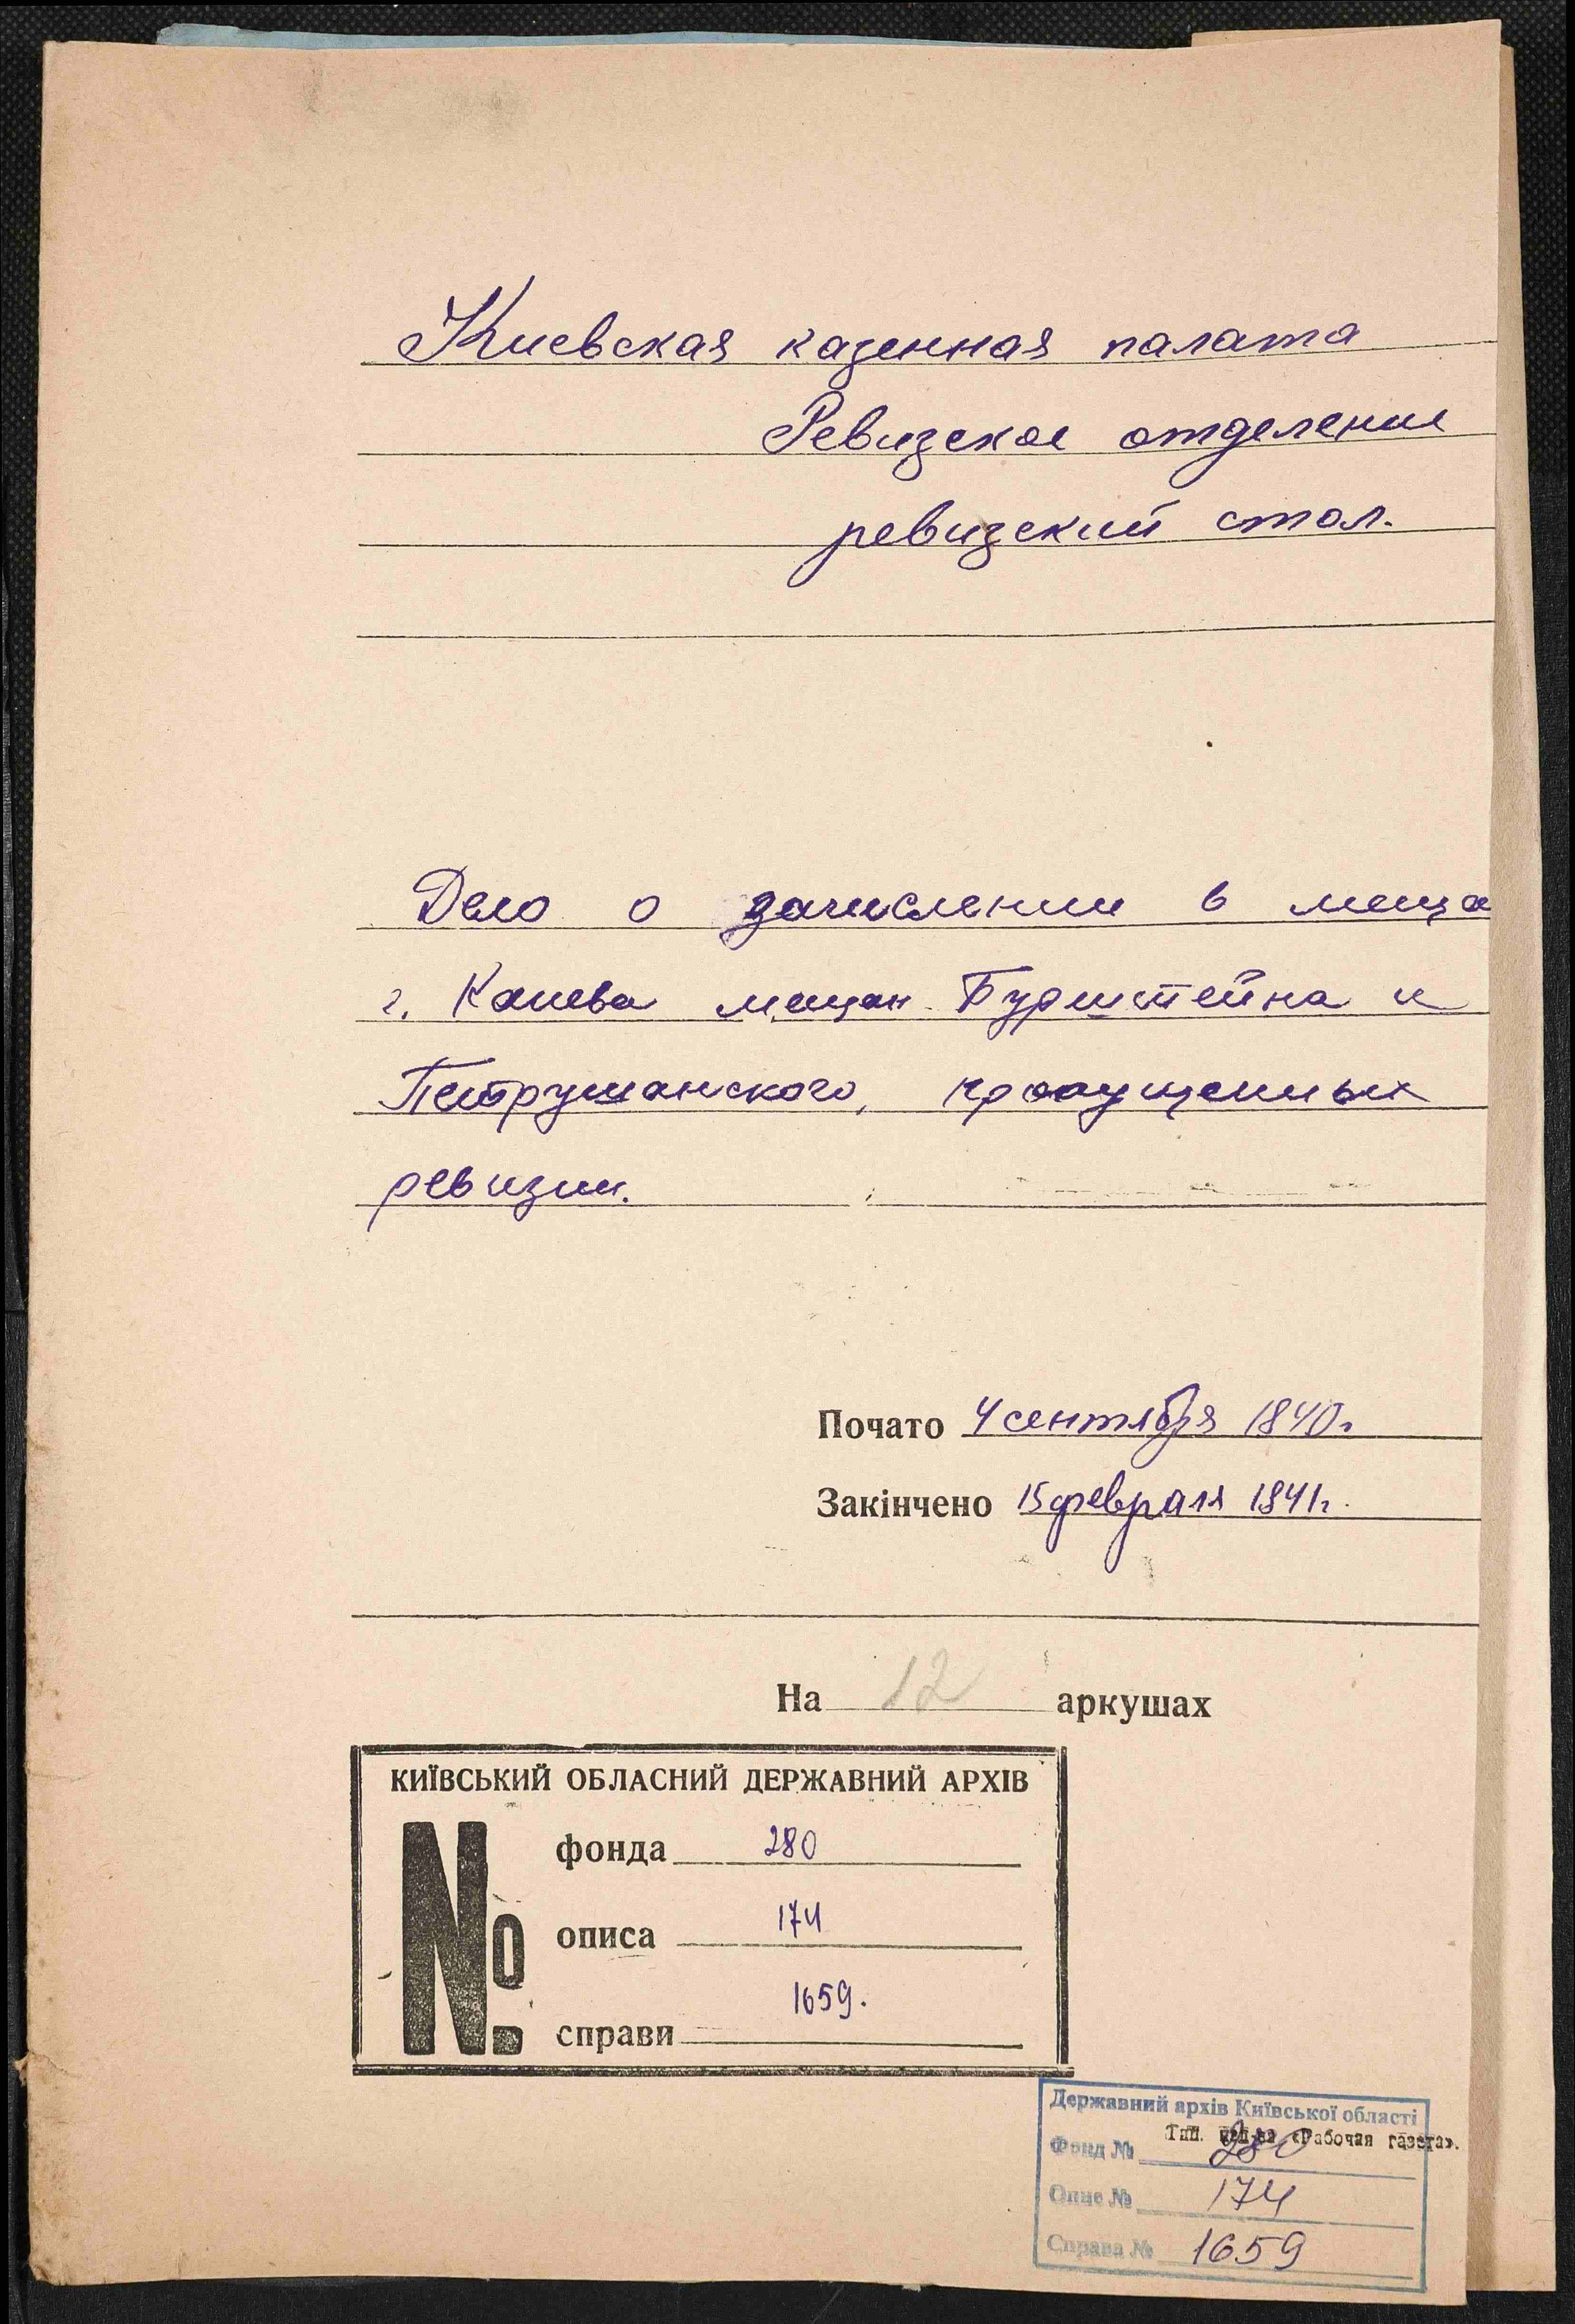 Киевская казенная палата
Ревизское отделение
ревизский стол.
Дело о зачислении в меща
г. Канева мещан Бурштейна и
Петрушанского, пропущенных
ревизии.
Почато 4 сентября 1840г
Закінчено 15 февраля 1841г.
На 12 аркушах
КИЇВСЬКИЙ ОБЛАСНИЙ ДЕРЖАВНИЙ АРХІВ
№
фонда 280
описа 174
справи 1659.
Державний архів Київської області
Тип. изд-ва «Рабочая газета».
Фонд № 280
Опис № 174
Справа № 1659